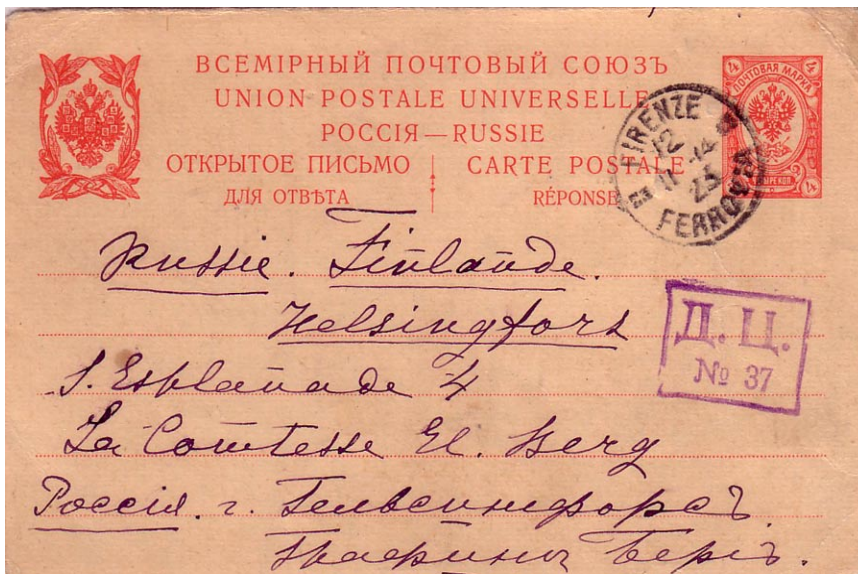 ВСЕМІРНЫЙ ПОЧТОВЫЙ СОЮЗЪ
UNION POSTALE UNIVERSELLE
РОССІЯ — RUSSIE
ОТКРЫТОЕ ПИСЬМО | CARTE POSTALE
ДЛЯ ОТВѢТА | RÉPONSE
4 ПОЧТОВАЯ МАРКА 4
4
FIRENZE
12
11 - 14
23
FERROVIA
Russie. Finlande.
Helsingfors
Д. Ц.
№ 37
S. Esplanade 4
La Comtesse El. Berg
Россія. г. Гельсингфорсъ
Графинѣ Бергъ.